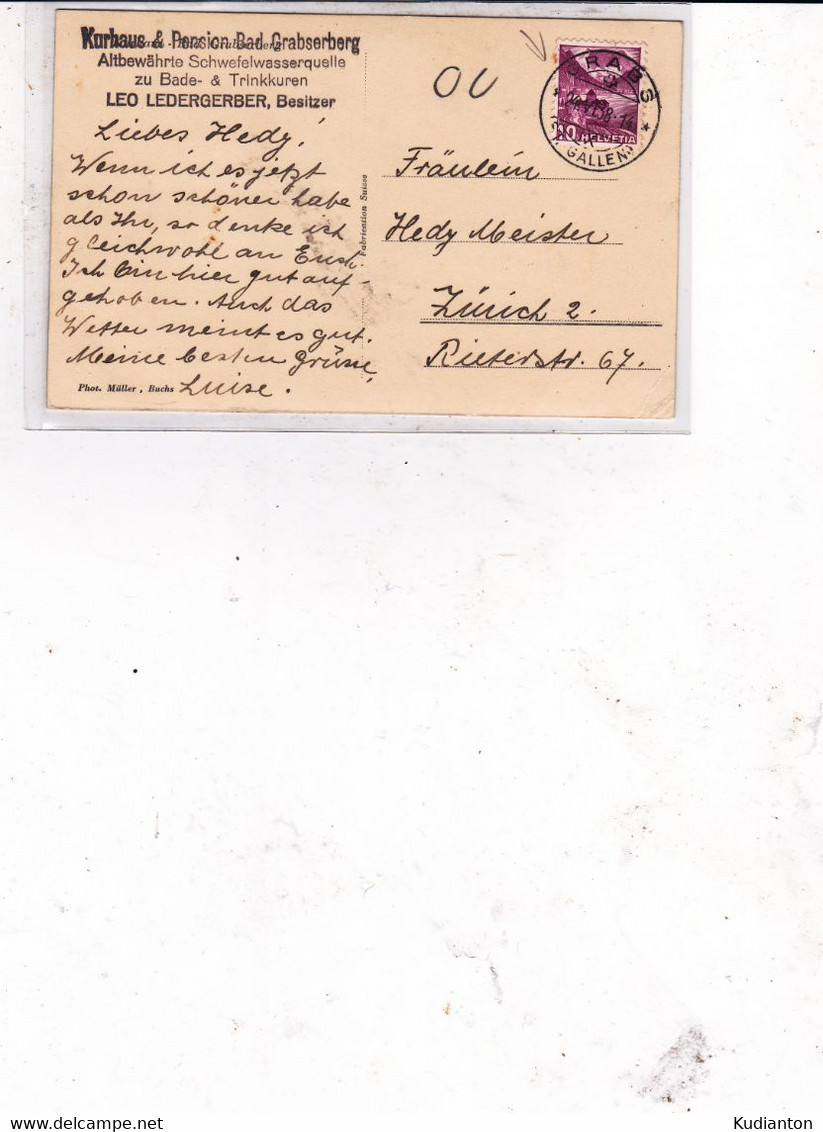 Kurhaus & Pension Bad Grabserberg
Altbewährte Schwefelwasserquelle
zu Bade- & Trinkkuren
LEO LEDERGERBER, Besitzer
Liebes Hedy!
Wenn ich es jetzt
schon schöner habe
als Ihr, so denke ich
gleichwohl an Euch.
Ich bin hier gut auf-
gehoben. Auch das
Wetter meint es gut.
Meine besten Grüsse,
Luise.
Phot. Müller, Buchs
Fabrication Suisse
OU
GRABS
HELVETIA
GALLEN)
Fräulein
Hedy Meister
Zürich 2.
Rieterstr. 67.
Kudianton